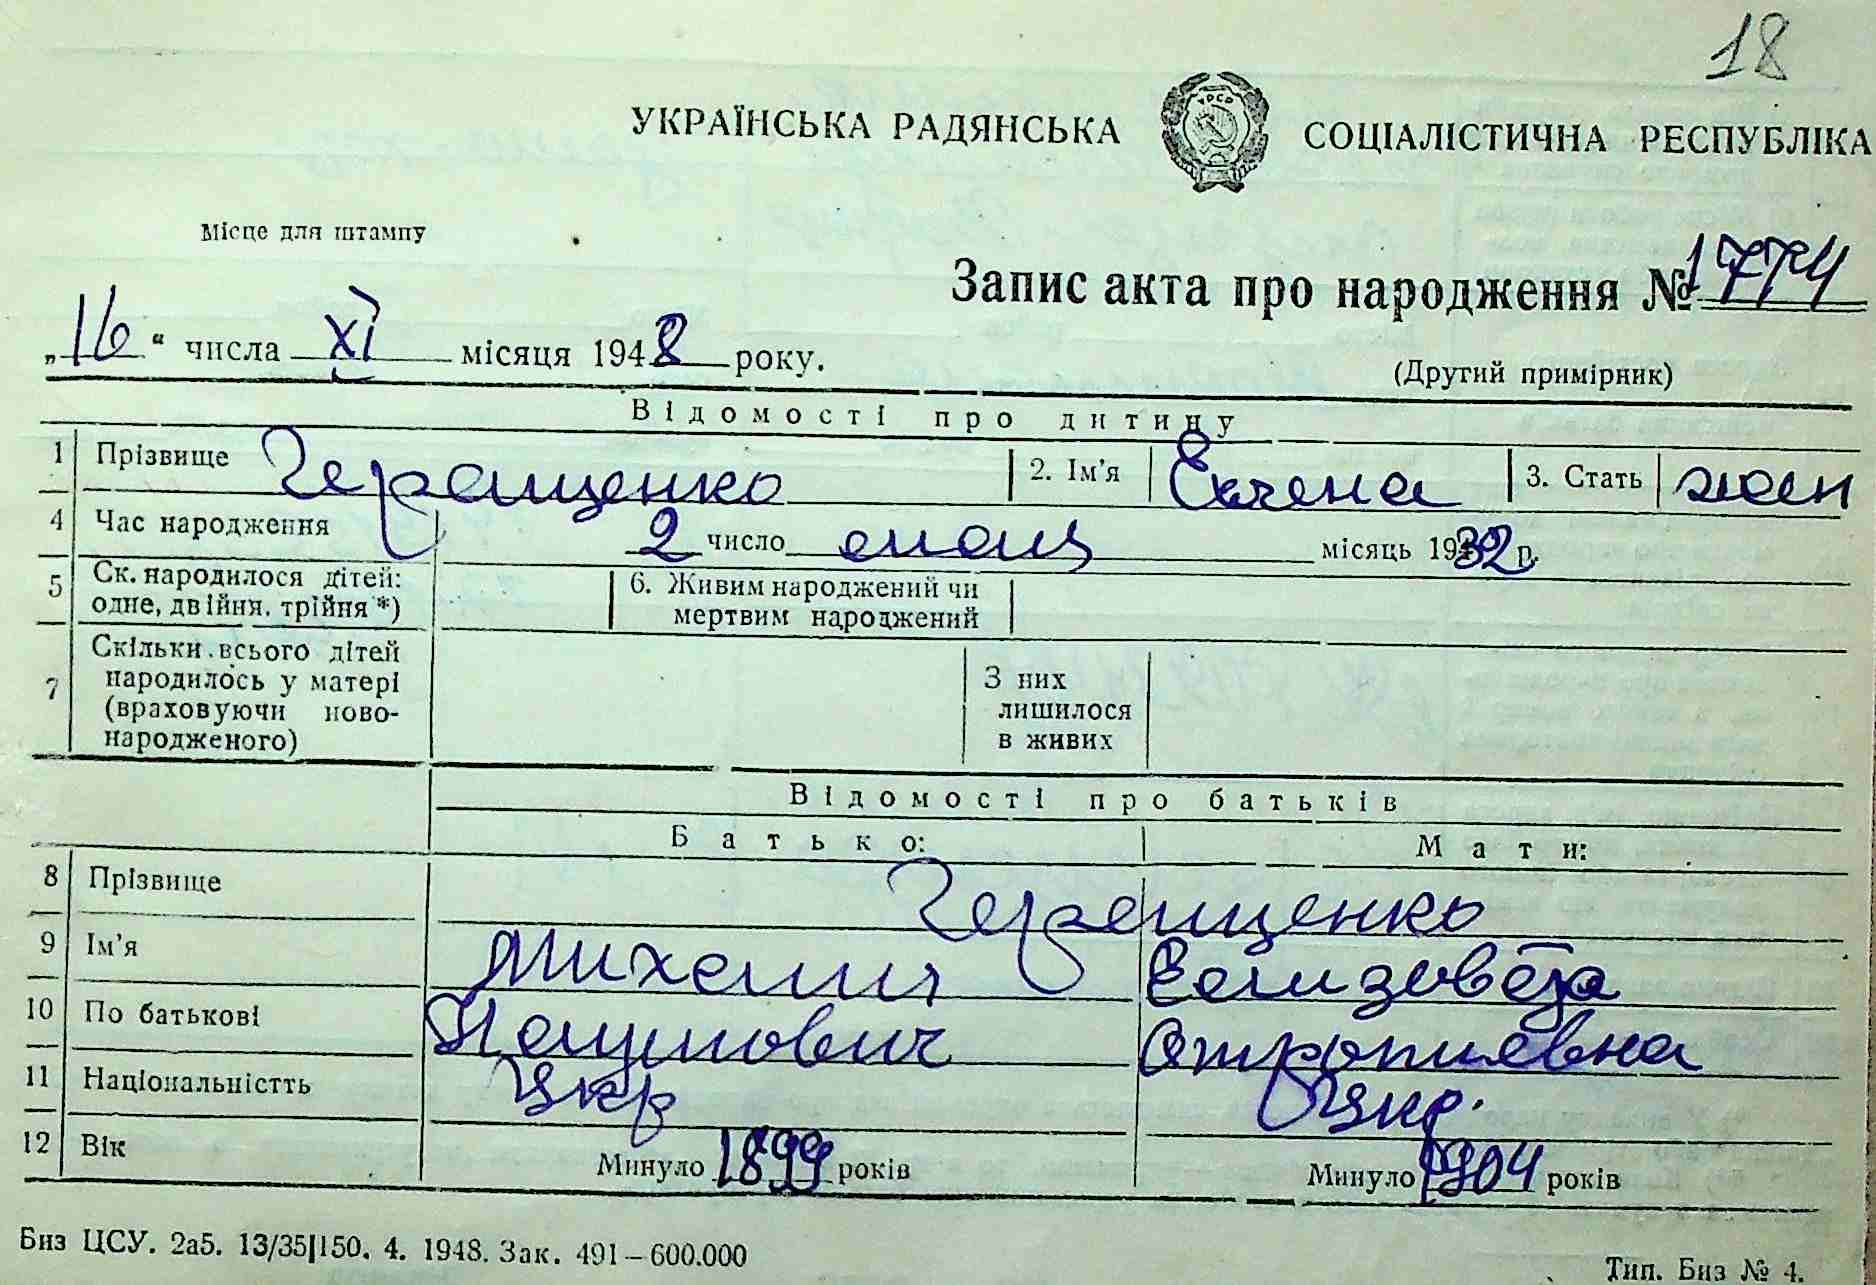 18
УКРАЇНСЬКА РАДЯНСЬКА СОЦІАЛІСТИЧНА РЕСПУБЛІКА
УРСР
Місце для штампу
Запис акта про народження № 1774
„16“ числа XI місяця 1948 року.
(Другий примірник)
Відомості про дитину
1 Прізвище Геращенко 2. Ім'я Елена 3. Стать жен
4 Час народження 2 число місяць 1932 р.
5 Ск. народилося дітей: одне, двійня, трійня *) 6. Живим народжений чи мертвим народжений
7 Скільки всього дітей народилось у матері (враховуючи ново-народженого) З них лишилося в живих
Відомості про батьків
Батько: Мати:
8 Прізвище Геращенко
9 Ім'я Михаил Елизовета
10 По батькові Наумович
11 Національністть Укр Укр.
12 Вік Минуло 1899 років Минуло 1904 років
Биз ЦСУ. 2а5. 13/35|150. 4. 1948. Зак. 491–600.000
Тип. Биз № 4.